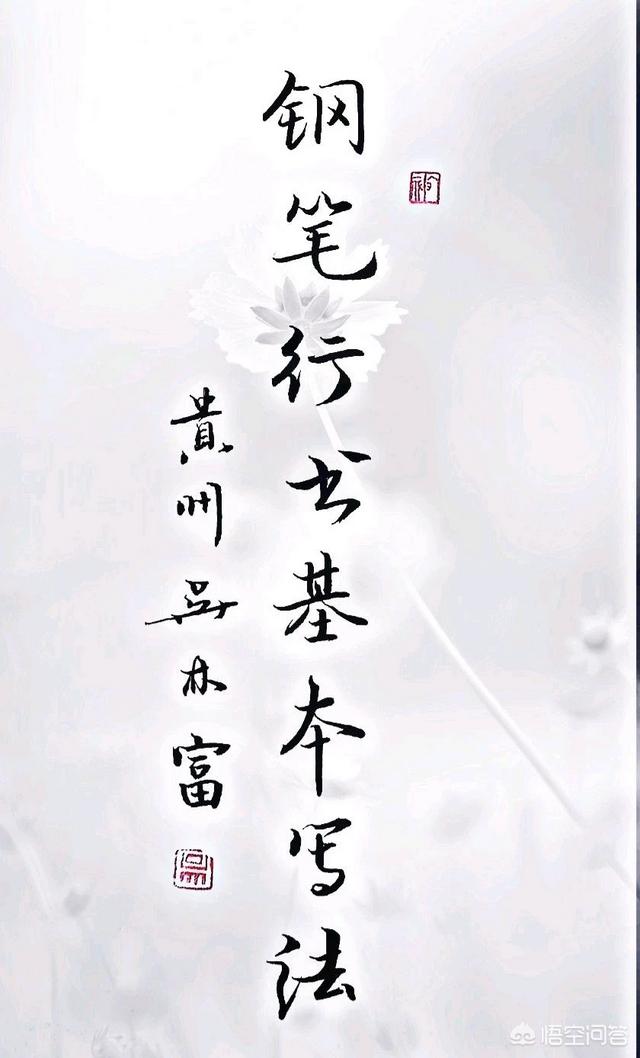 钢笔行书基本写法
貴州吴林富
悟空问答